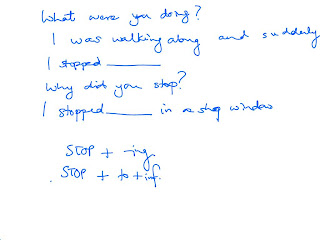 What were you doing?
I was walking along and suddenly
I stopped ______
Why did you stop?
I stopped ______ in a shop window
STOP + -ing
STOP + to + inf.